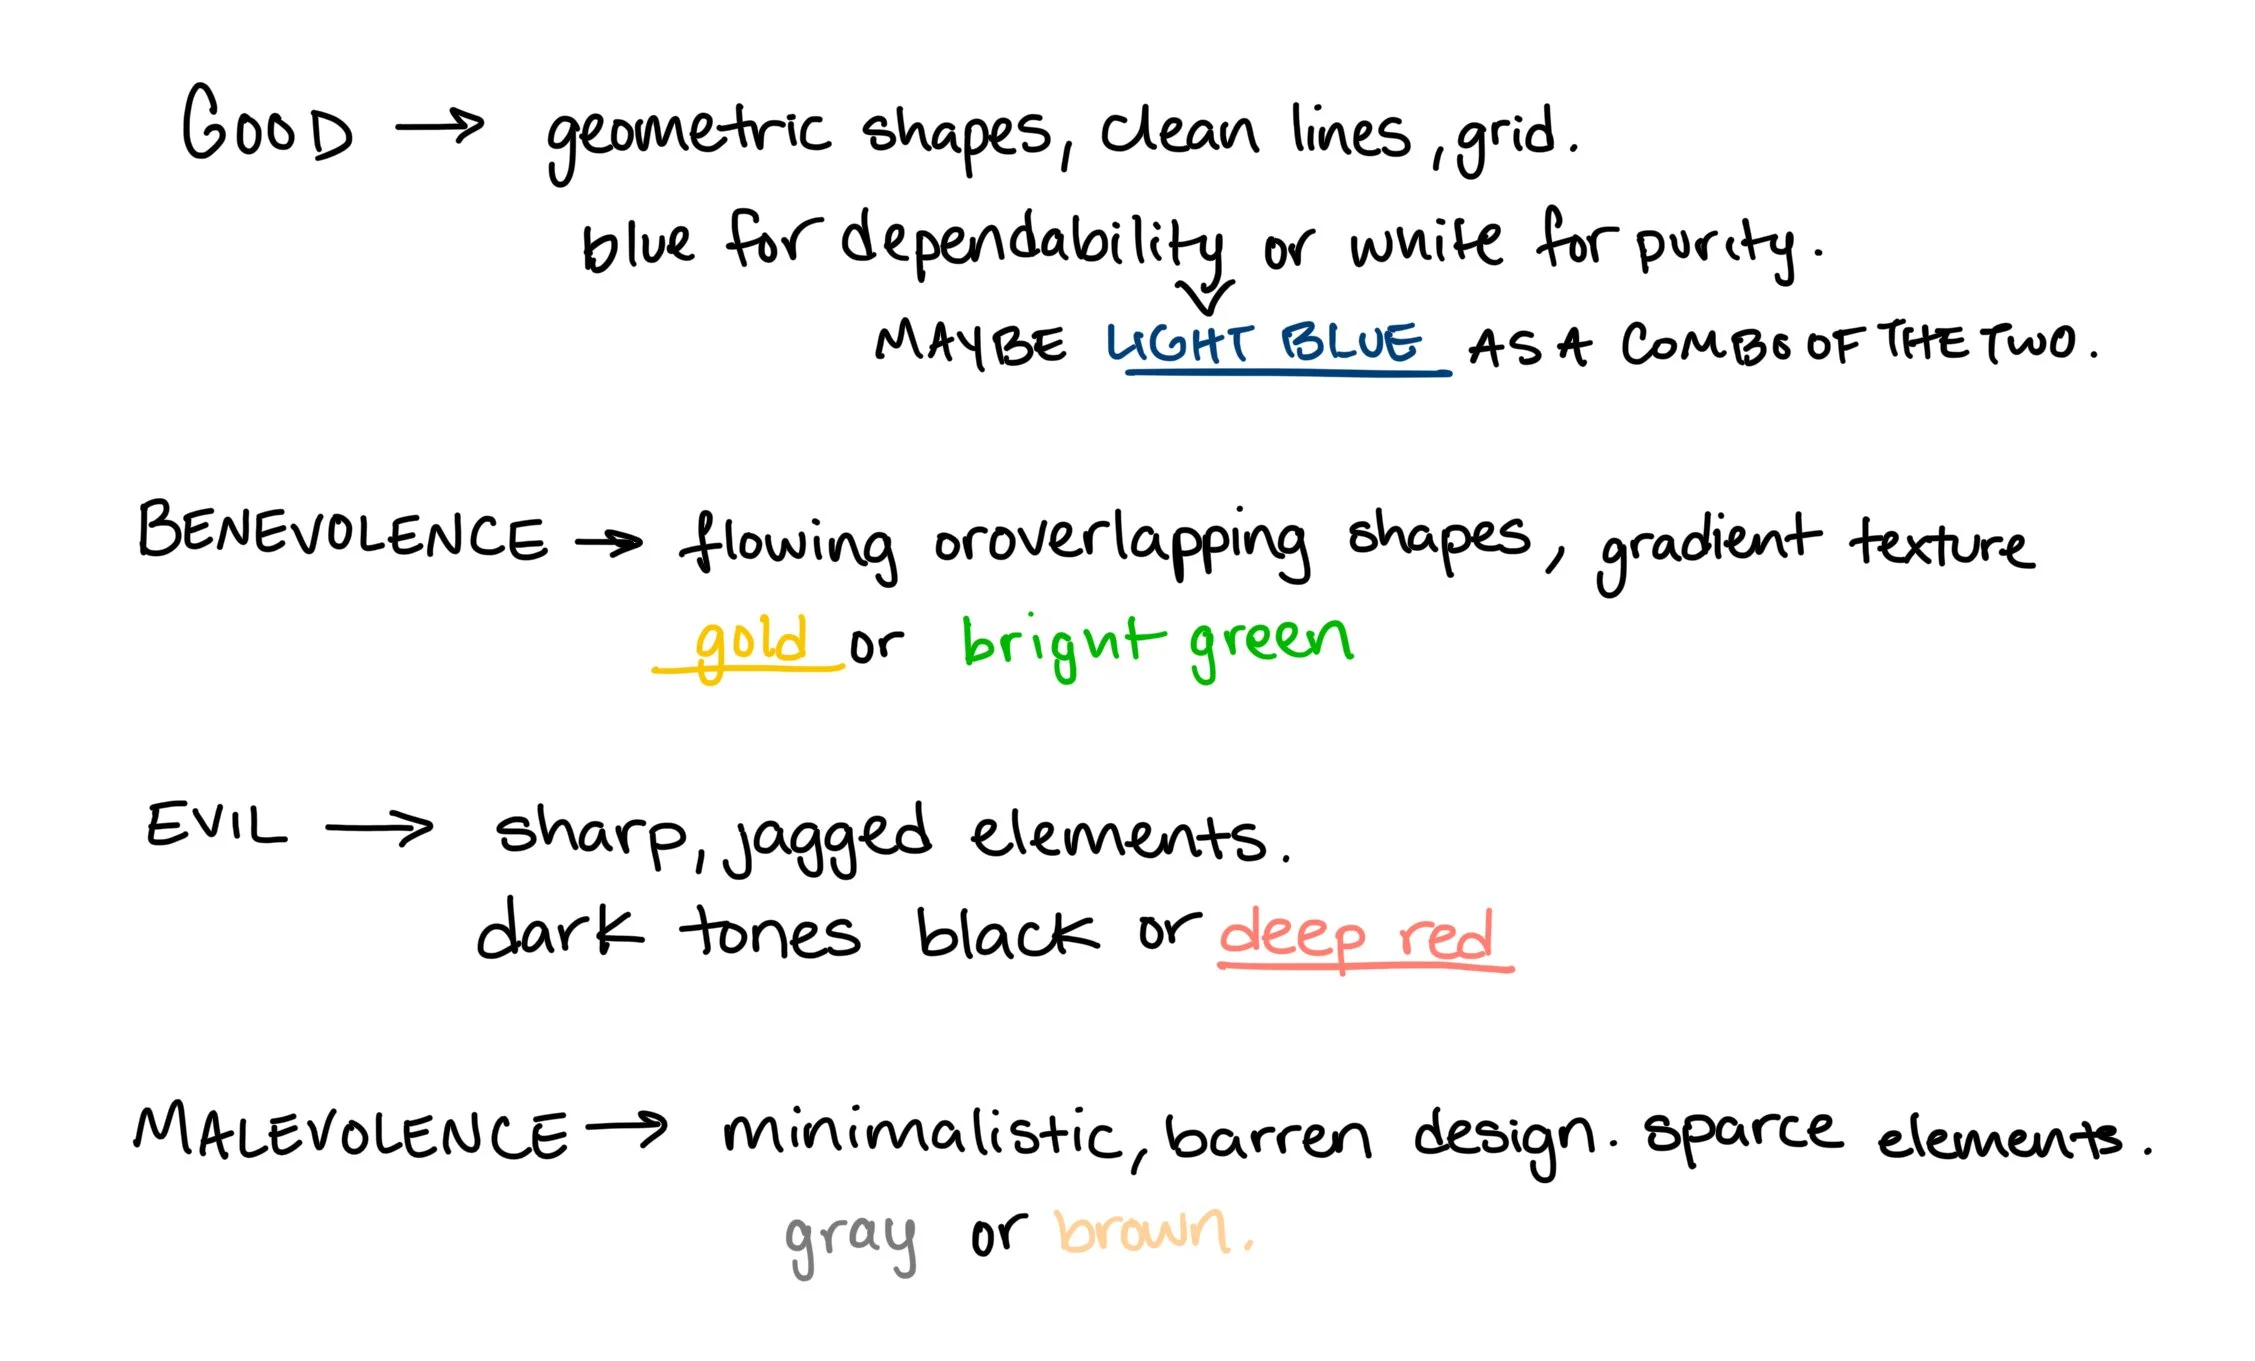 GOOD → geometric shapes, clean lines, grid.
blue for dependability or white for purity.
MAYBE LIGHT BLUE AS A COMBO OF THE TWO.
BENEVOLENCE → flowing or overlapping shapes, gradient texture
gold or bright green
EVIL → sharp, jagged elements.
dark tones black or deep red
MALEVOLENCE → minimalistic, barren design. sparce elements.
gray or brown.